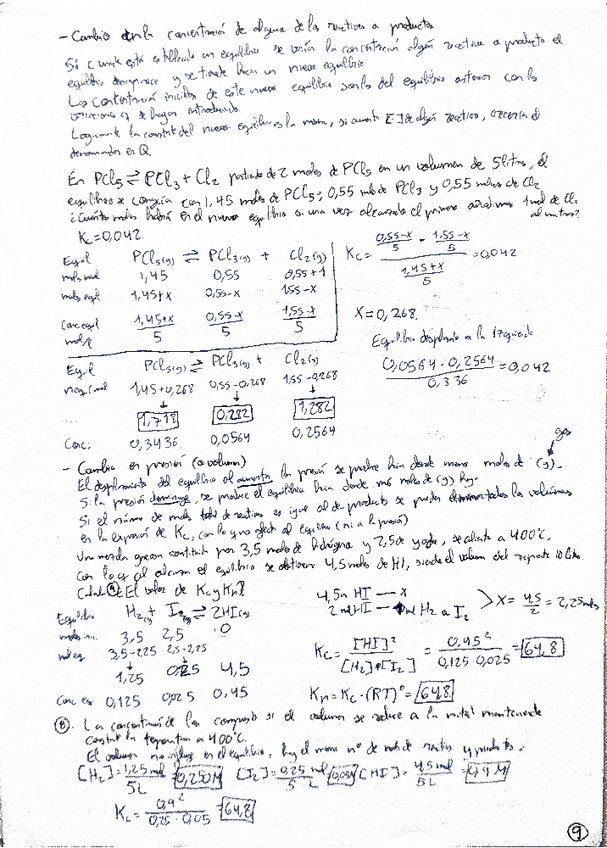 - Cambio en la concentración de alguno de los reactivos o productos
Si cuando está establecido un equilibrio se varía la concentración algún reactivo o producto el
equilibrio desaparece y se tiende hacia un nuevo equilibrio
Las concentraciones iniciales de este nuevo equilibrio son las del equilibrio anterior con las
variaciones q se hayan introducido.
Logicamente la constante del nuevo equilibrio es la misma, si aumenta [ ] de algún reactivo,
denominador en Q.
En PCl5 ⇌ PCl3 + Cl2 partiendo de 2 moles de PCl5 en un volumen de 5 litros, el
equilibrio se consigue con 1,45 moles de PCl5; 0,55 mols de PCl3 y 0,55 moles de Cl2
¿Cuántos moles habrá en el nuevo equilibrio si una vez alcanzado el primero añadimos 1 mol de Cl2
al mismo?
Kc = 0,042
Equil PCl5(g) ⇌ PCl3(g) + Cl2(g)
mols inicial 1,45 0,55 0,55+1
mols equil 1,45+x 0,55-x 1,55-x
Conc equil 1,45+x/5 0,55-x/5 1,55-x/5
mol/l
Kc = (0,55-x/5 · 1,55-x/5) / (1,45+x/5) = 0,042
X = 0,268
Equilibrio desplazado a la izquierda
0,0564 · 0,2564 / 0,336 = 0,042
Equil PCl5(g) ⇌ PCl3(g) + Cl2(g)
1,45+0,268 0,55-0,268 1,55-0,268
1,718 0,282 1,282
Conc: 0,3436 0,0564 0,2564
- Cambio en presión (o volumen)
gas
El desplazamiento del equilibrio al aumentar la presión se produce hacia donde menos moles de (g).
Si la presión disminuye, se produce el equilibrio hacia donde más moles de (g) hay.
Si el número de moles total de reactivos es igual al de productos se pueden todos los volúmenes
en la expresión de Kc, con lo q no afecta al equilibrio (ni a la presión)
Una mezcla gaseosa constituida por 3,5 moles de hidrógeno y 2,5 de yodo, se calienta a 400°C.
con lo q al alcanzar el equilibrio se obtienen 4,5 moles de HI, siendo el volumen del recipiente 10 litros.
Calcula: A El valor de Kc y Kp
Equilibrio H2(g) + I2(g) ⇌ 2HI(g)
moles inic. 3,5 2,5 0
mol eq 3,5-2,25 2,5-2,25
1,25 0,25 4,5
Conc eq 0,125 0,025 0,45
4,5n HI — x
2 mol HI — 1 mol H2 o I2
> x = 4,5/2 = 2,25 moles
Kc = [HI]²/[H2]·[I2] = 0,45²/0,125·0,025 = 64,8
Kp = Kc · (RT)⁰ = 64,8
B. La concentración de los compuestos si el volumen se reduce a la mitad manteniendo
constante la temperatura a 400°C.
El volumen no influye en el equilibrio, hay el mismo nº de mols de reactivos y productos.
[H2] = 1,25 mol/5L = 0,250M [I2] = 0,25 mol/5 L = 0,05M [HI] = 4,5 mol/5L = 0,9 M
Kc = 0,9²/0,25·0,05 = 64,8
9